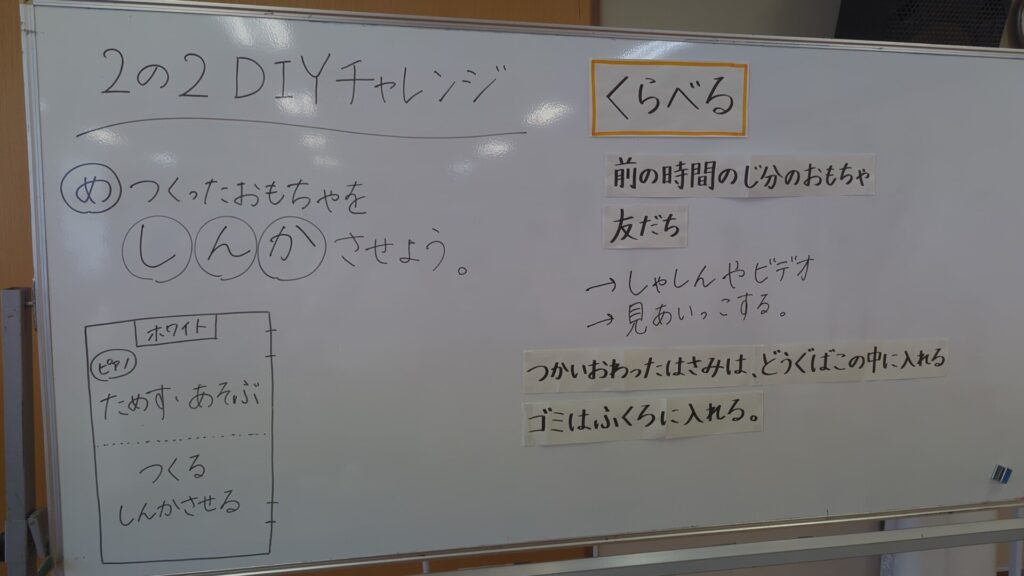 2の2 DIYチャレンジ
め つくったおもちゃを
しんかさせよう。
ホワイト
ピアノ
ためす・あそぶ
つくる
しんかさせる
くらべる
前の時間のじ分のおもちゃ
友だち
→しゃしんやビデオ
→見あいっこする。
つかいおわったはさみは、どうぐばこの中に入れる
ゴミはふくろに入れる。